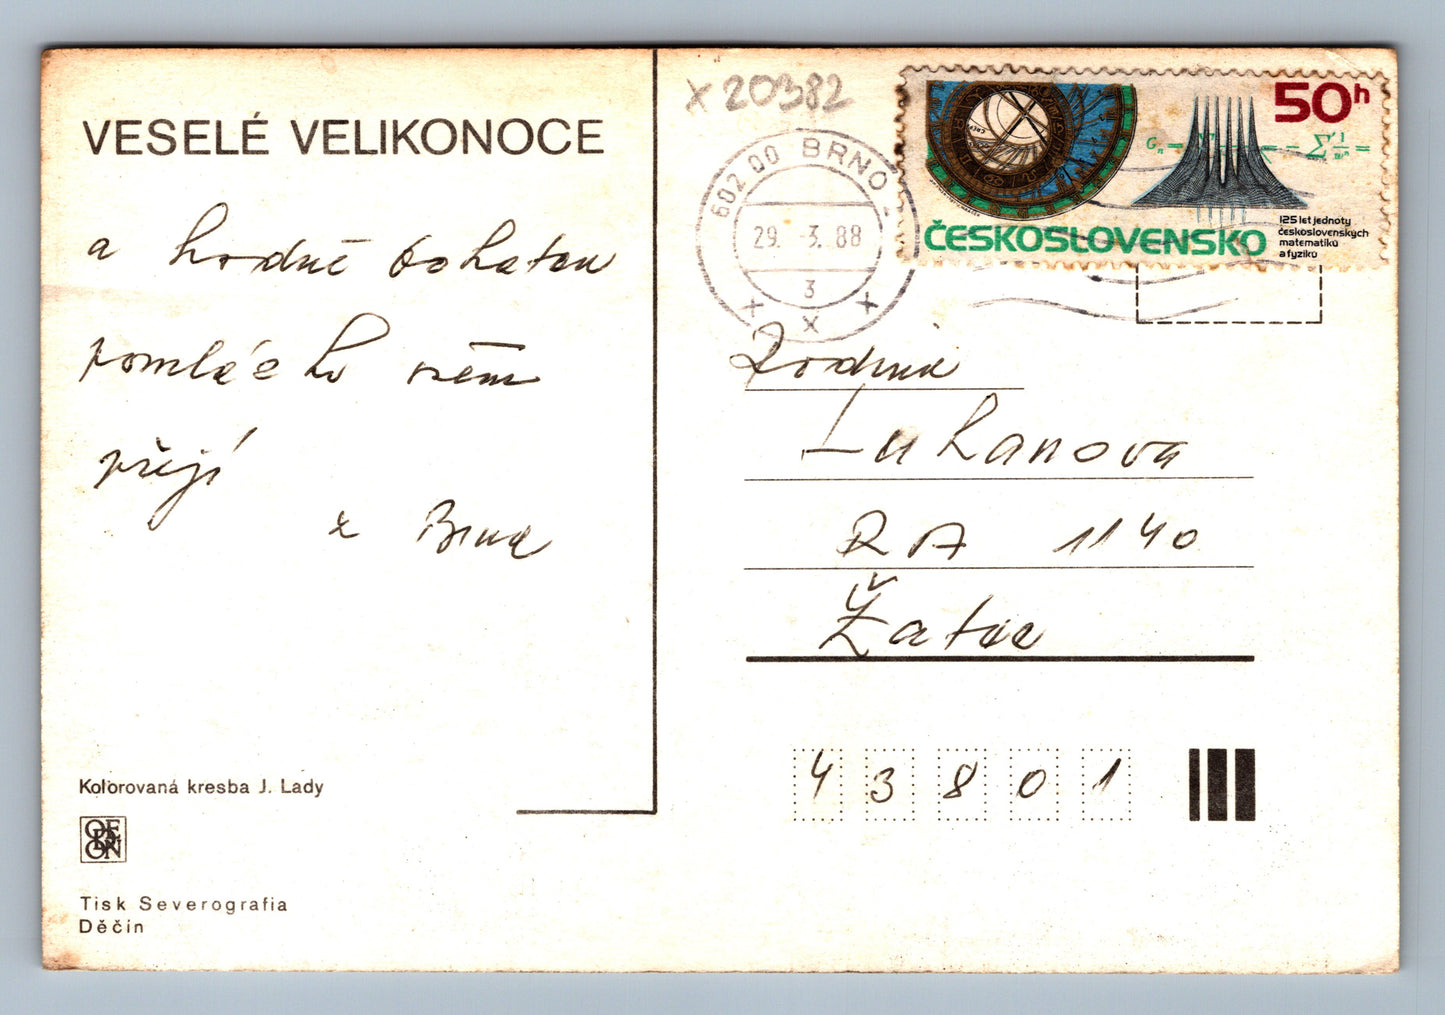 VESELÉ VELIKONOCE
a hodně bohatou
pomlázku všem
přejí
z Brna
Kolorovaná kresba J. Lady
ORBON
Tisk Severografia
Děčín
x 20382
602 00 BRNO 2
29. -3. 88
3
x x x
50h
ČESKOSLOVENSKO
125 let jednoty
československých
matematiků
a fyziků
Rodina
Lukanova
RA 1140
Žatec
43801